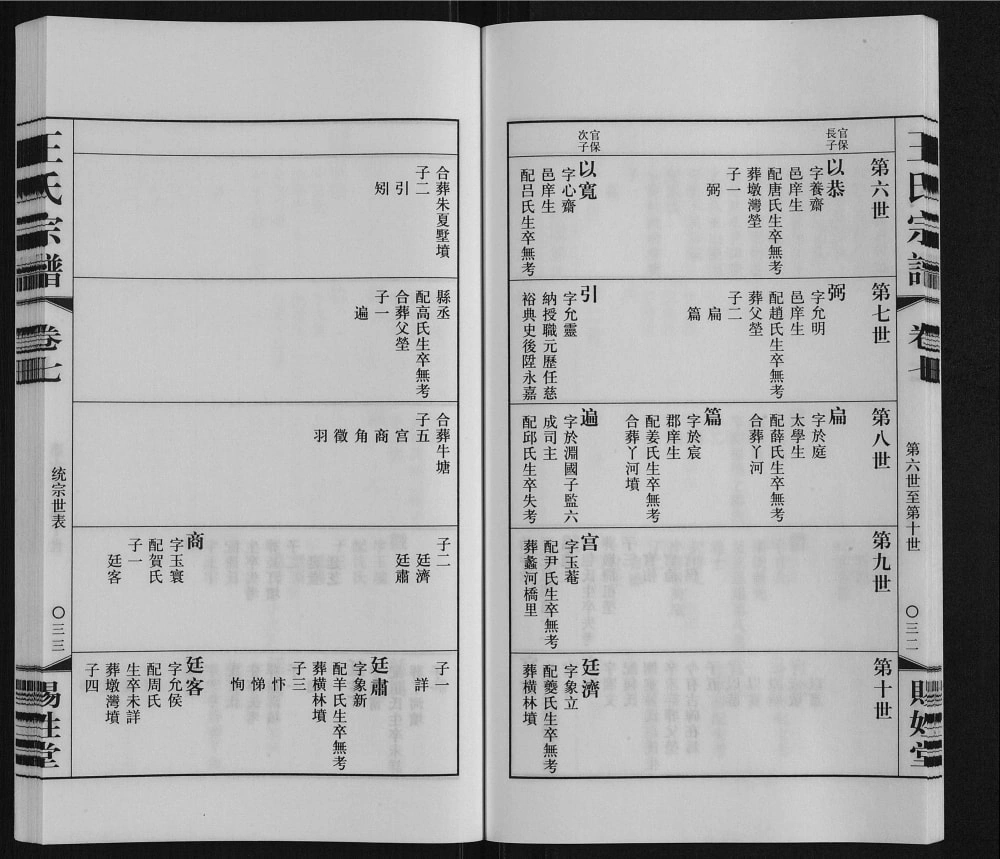 王氏宗譜
卷七
第六世至第十世
〇三二
賜姓堂
第六世
官保長子
以恭
字養齋
邑庠生
配唐氏生卒無考
葬墩灣塋
子一
弼
官保次子
以寬
字心齋
邑庠生
配呂氏生卒無考
第七世
弼
字允明
邑庠生
配趙氏生卒無考
葬父塋
子二
扁
篇
引
字允靈
納授職元歷任慈
裕典史後陞永嘉
第八世
扁
字於庭
太學生
配薛氏生卒無考
合葬丫河
篇
字於宸
郡庠生
配姜氏生卒無考
合葬丫河墳
遍
字於淵國子監六
成司主
配邱氏生卒失考
第九世
宫
字玉菴
配尹氏生卒無考
葬蠡河橋里
第十世
廷濟
字象立
配夔氏生卒無考
葬橫林墳
合葬朱夏墅墳
子二
引
矧
縣丞
配高氏生卒無考
合葬父塋
子一
遍
合葬牛塘
子五
宫
商
角
徵
羽
子二
廷濟
廷肅
商
字玉寰
配賀氏
子一
廷客
子一
詳
廷肅
字象新
配羊氏生卒無考
葬橫林墳
子三
忭
悌
恂
廷客
字允侯
配周氏
生卒未詳
葬墩灣墳
子四
王氏宗譜
卷七
统宗世表
〇三三
賜姓堂